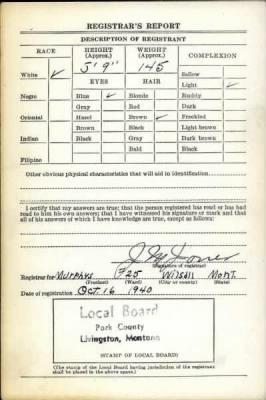 REGISTRAR'S REPORT
DESCRIPTION OF REGISTRANT
RACE HEIGHT (Approx.) WEIGHT (Approx.) COMPLEXION
5' 9" 145 Sallow
White ✓ EYES HAIR Light ✓
Negro Blue ✓ Blonde Ruddy
Gray Red Dark
Oriental Hazel Brown ✓ Freckled
Brown Black Light brown
Indian Black Gray Dark brown
Bald Black
Filipino
Other obvious physical characteristics that will aid in identification
I certify that my answers are true; that the person registered has read or has had
read to him his own answers; that I have witnessed his signature or mark and that
all of his answers of which I have knowledge are true, except as follows:
Jones
(Signature of registrar)
Registrar for Murphys #25 Wilsall Mont.
(Precinct) (Ward) (City or county) (State)
Date of registration Oct. 16 1940
Local Board
Park County
Livingston, Montana
(STAMP OF LOCAL BOARD)
(The stamp of the Local Board having jurisdiction of the registrant
shall be placed in the above space.)